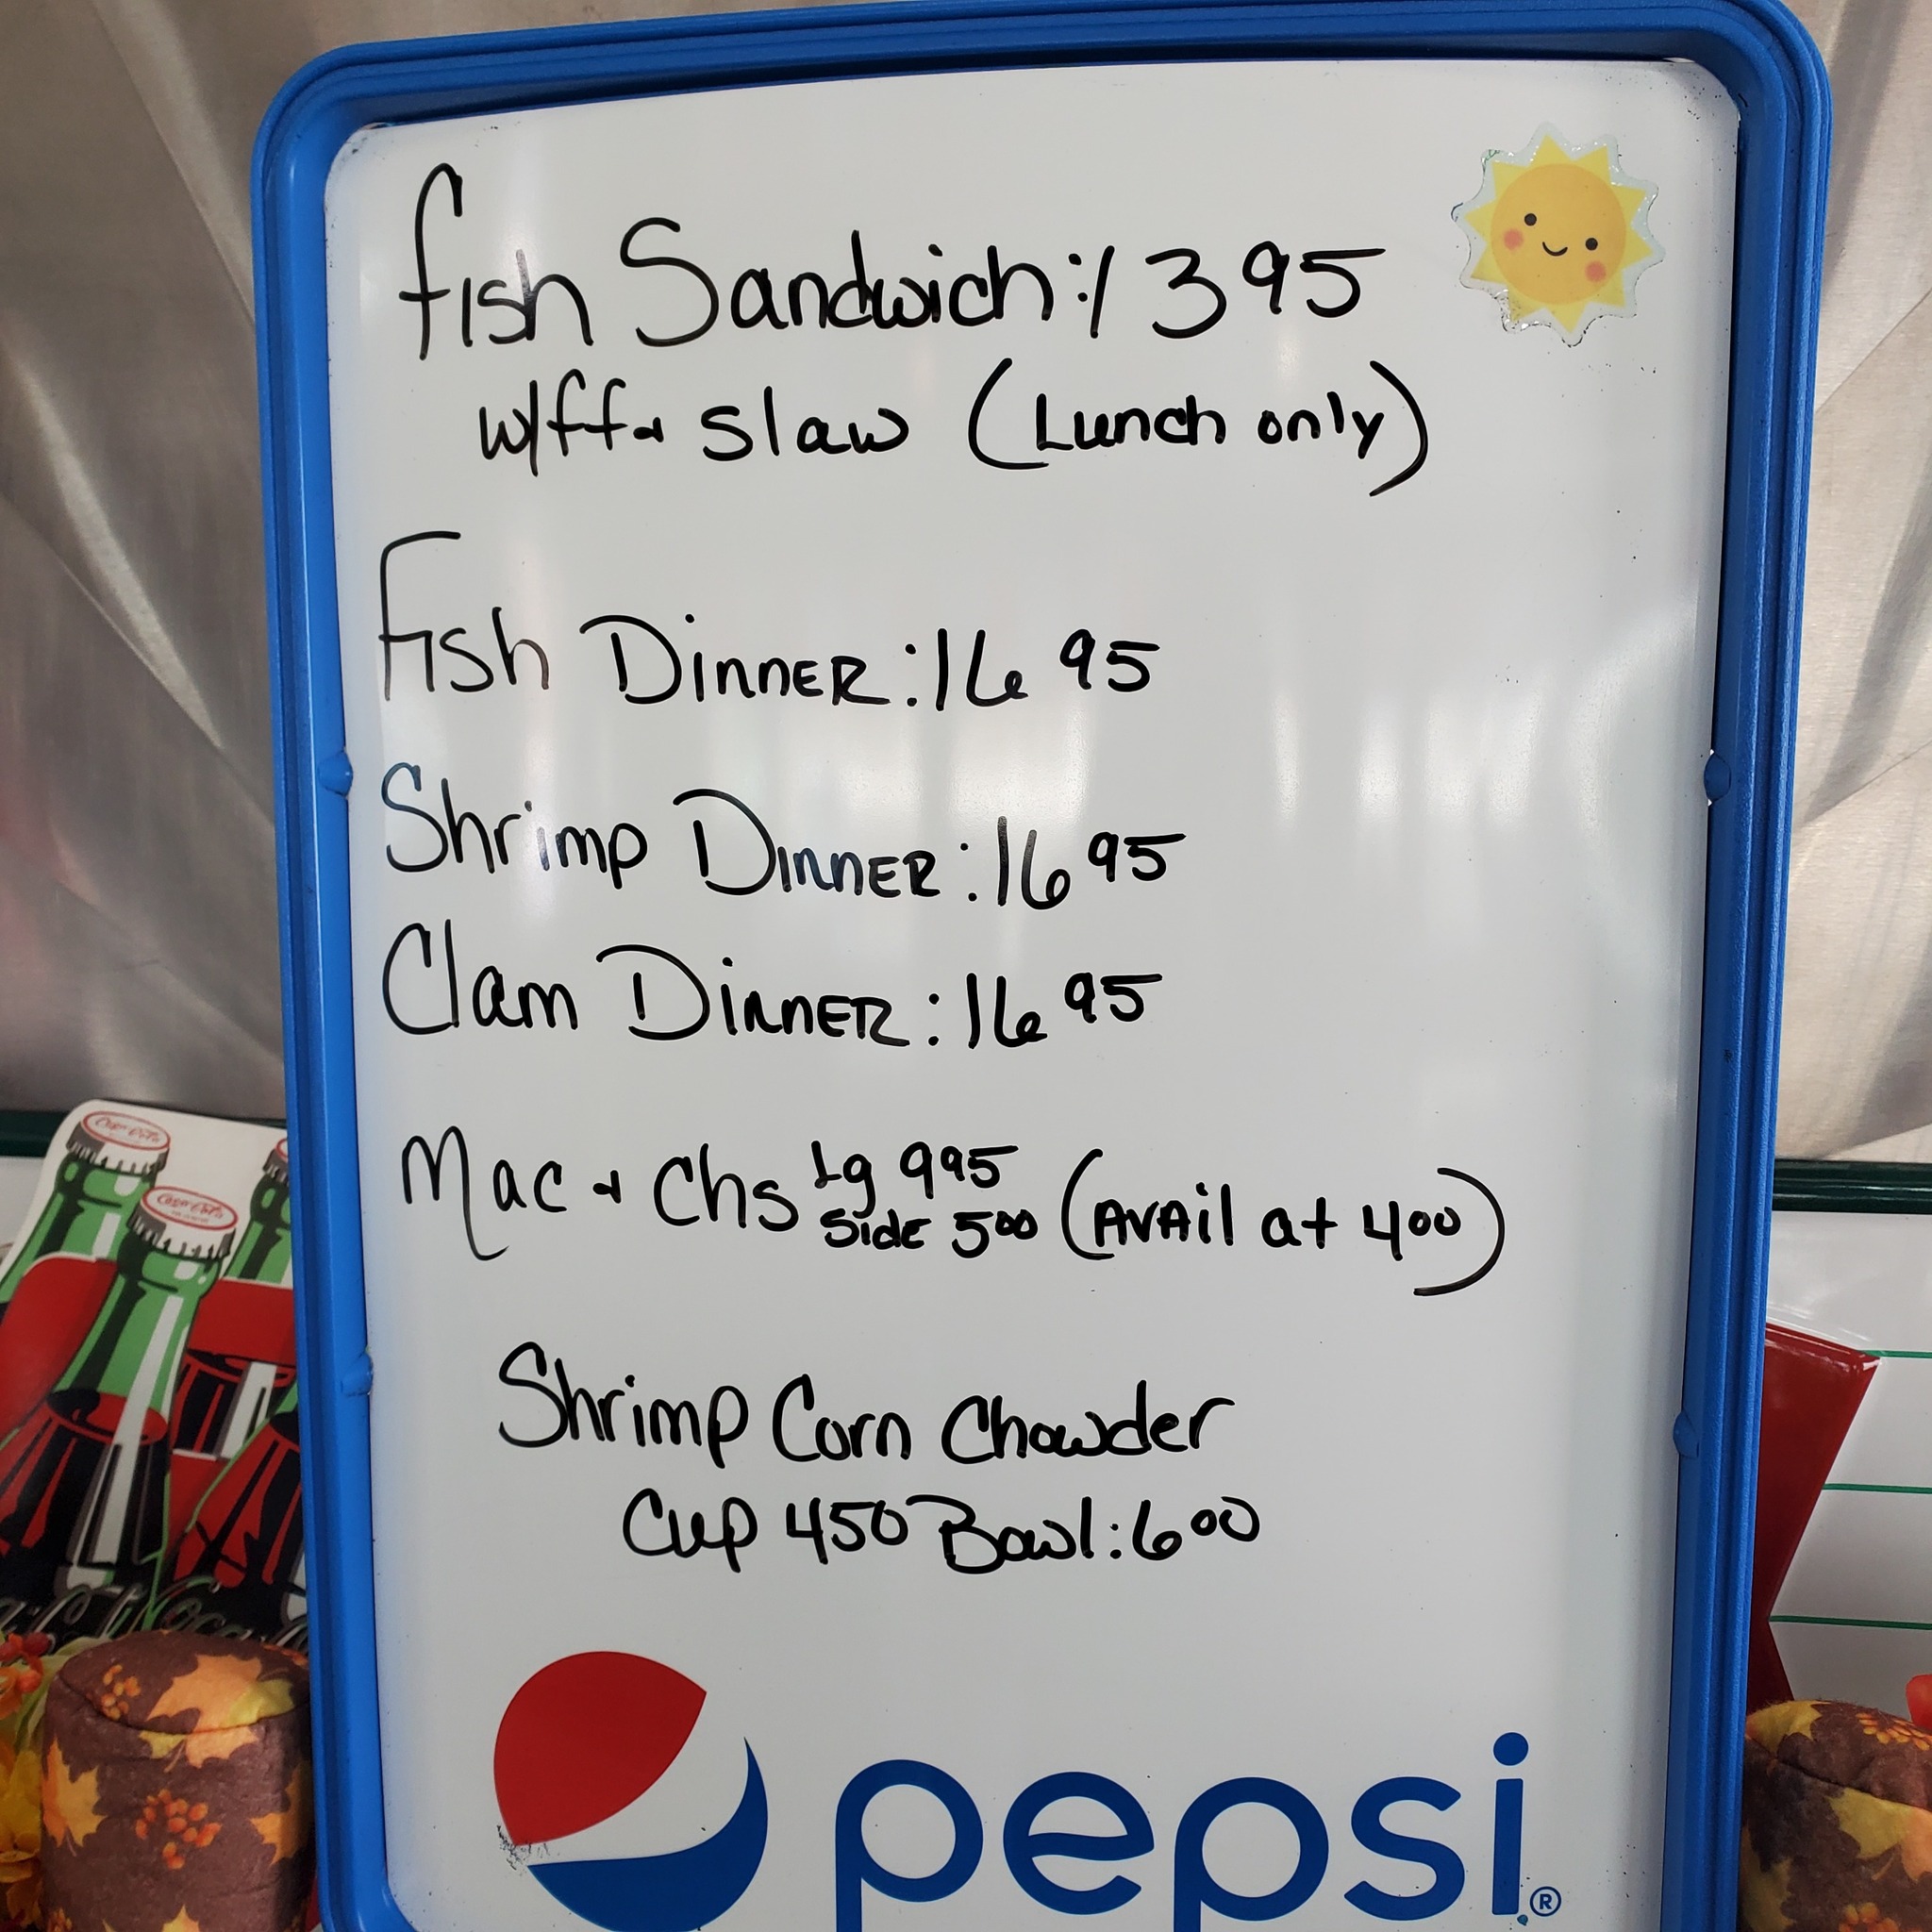 Fish Sandwich: 13 95
w/ff + slaw (Lunch only)
Fish Dinner: 16 95
Shrimp Dinner: 16 95
Clam Dinner: 16 95
Mac + Chs Lg 9 95
Side 5 00 (Avail at 4 00)
Shrimp Corn Chowder
Cup 4 50 Bowl: 6 00
pepsi®
Coca-Cola
Coca-Cola